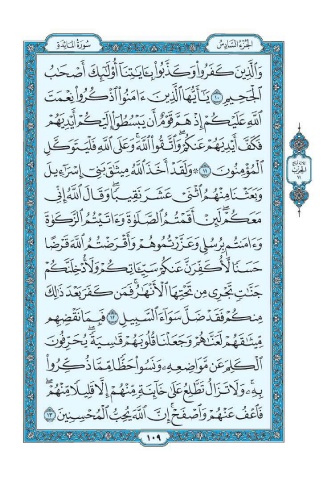 الجزء السادس
سورة المائدة
وَالَّذِينَ كَفَرُوا وَكَذَّبُوا بِآيَاتِنَا أُولَٰئِكَ أَصْحَابُ
الْجَحِيمِ ١٠ يَا أَيُّهَا الَّذِينَ آمَنُوا اذْكُرُوا نِعْمَتَ
اللَّهِ عَلَيْكُمْ إِذْ هَمَّ قَوْمٌ أَن يَبْسُطُوا إِلَيْكُمْ أَيْدِيَهُمْ
فَكَفَّ أَيْدِيَهُمْ عَنكُمْ وَاتَّقُوا اللَّهَ وَعَلَى اللَّهِ فَلْيَتَوَكَّلِ
الْمُؤْمِنُونَ ١١ ۞ وَلَقَدْ أَخَذَ اللَّهُ مِيثَاقَ بَنِي إِسْرَائِيلَ
وَبَعَثْنَا مِنْهُمُ اثْنَيْ عَشَرَ نَقِيبًا وَقَالَ اللَّهُ إِنِّي
مَعَكُمْ لَئِنْ أَقَمْتُمُ الصَّلَاةَ وَآتَيْتُمُ الزَّكَاةَ
وَآمَنتُم بِرُسُلِي وَعَزَّرْتُمُوهُمْ وَأَقْرَضْتُمُ اللَّهَ قَرْضًا
حَسَنًا لَّأُكَفِّرَنَّ عَنكُمْ سَيِّئَاتِكُمْ وَلَأُدْخِلَنَّكُمْ
جَنَّاتٍ تَجْرِي مِن تَحْتِهَا الْأَنْهَارُ فَمَن كَفَرَ بَعْدَ ذَٰلِكَ
مِنكُمْ فَقَدْ ضَلَّ سَوَاءَ السَّبِيلِ ١٢ فَبِمَا نَقْضِهِم
مِّيثَاقَهُمْ لَعَنَّاهُمْ وَجَعَلْنَا قُلُوبَهُمْ قَاسِيَةً يُحَرِّفُونَ
الْكَلِمَ عَن مَّوَاضِعِهِ وَنَسُوا حَظًّا مِّمَّا ذُكِّرُوا
بِهِ وَلَا تَزَالُ تَطَّلِعُ عَلَىٰ خَائِنَةٍ مِّنْهُمْ إِلَّا قَلِيلًا مِّنْهُمْ
فَاعْفُ عَنْهُمْ وَاصْفَحْ إِنَّ اللَّهَ يُحِبُّ الْمُحْسِنِينَ ١٣
١٠٩